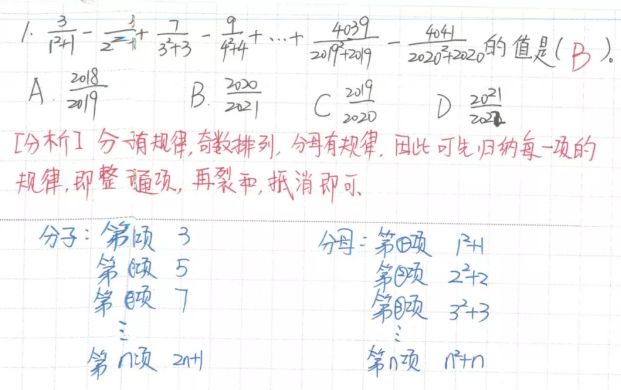 1. 3/(1²+1) - /(2²) + 7/(3²+3) - 9/(4²+4) + … + 4039/(2019²+2019) - 4041/(2020²+2020) 的值是( B )。
A. 2018/2019 B. 2020/2021 C 2019/2020 D 2021/2022
[分析] 分 有规律,奇数排列,分母有规律,因此可先归纳每一项的
规律,即整 通项,再裂和,抵消即可.
分子: 第 项 3 分母: 第①项 1²+1
第 项 5 第②项 2²+2
第 项 7 第③项 3²+3
⋮ ⋮
第n项 2n+1 第n项 n²+n